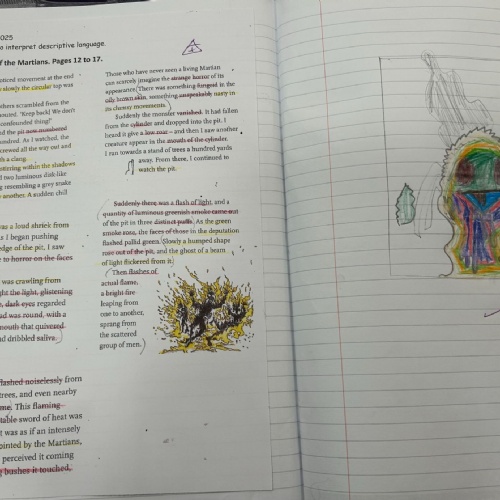 025
o interpret descriptive language.
f the Martians. Pages 12 to 17.
oticed movement at the end
slowly the circular top was
thers scrambled from the
outed. 'Keep back! We don't
confounded thing!'
d the pit now numbered
undred. As I watched, the
crewed all the way out and
th a clang.
ttering within the shadows
d two luminous disk-like
ng resembling a grey snake
another. A sudden chill
was a loud shriek from
s I began pushing
edge of the pit, I saw
e to horror on the faces
was crawling from
ght the light, glistening
e, dark eyes regarded
ad was round, with a
mouth that quivered
nd dribbled saliva.
flashed noiselessly from
trees, and even nearby
me. This flaming
table sword of heat was
t was as if an intensely
ointed by the Martians,
perceived it coming
g bushes it touched,
Those who have never seen a living Martian
can scarcely imagine the strange horror of its
appearance. There was something funged in the
oily brown skin, something unspeakably nasty in
its clumsy movements.
Suddenly the monster vanished. It had fallen
from the cylinder and dropped into the pit. I
heard it give a low roar – and then I saw another
creature appear in the mouth of the cylinder.
I ran towards a stand of trees a hundred yards
away. From there, I continued to
watch the pit.
Suddenly there was a flash of light, and a
quantity of luminous greenish smoke came out
of the pit in three distinct puffs. As the green
smoke rose, the faces of those in the deputation
flashed pallid green. Slowly a humped shape
rose out of the pit, and the ghost of a beam
of light flickered from it.
Then flashes of
actual flame,
a bright fire
leaping from
one to another,
sprang from
the scattered
group of men.